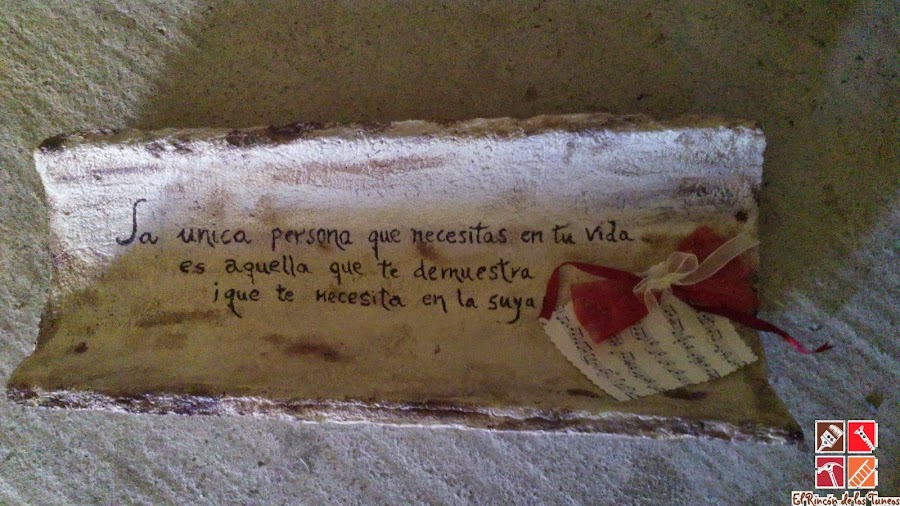 La unica persona que necesitas en tu vida
es aquella que te demuestra
¡que te necesita en la suya
El Rincón de los Tuneos